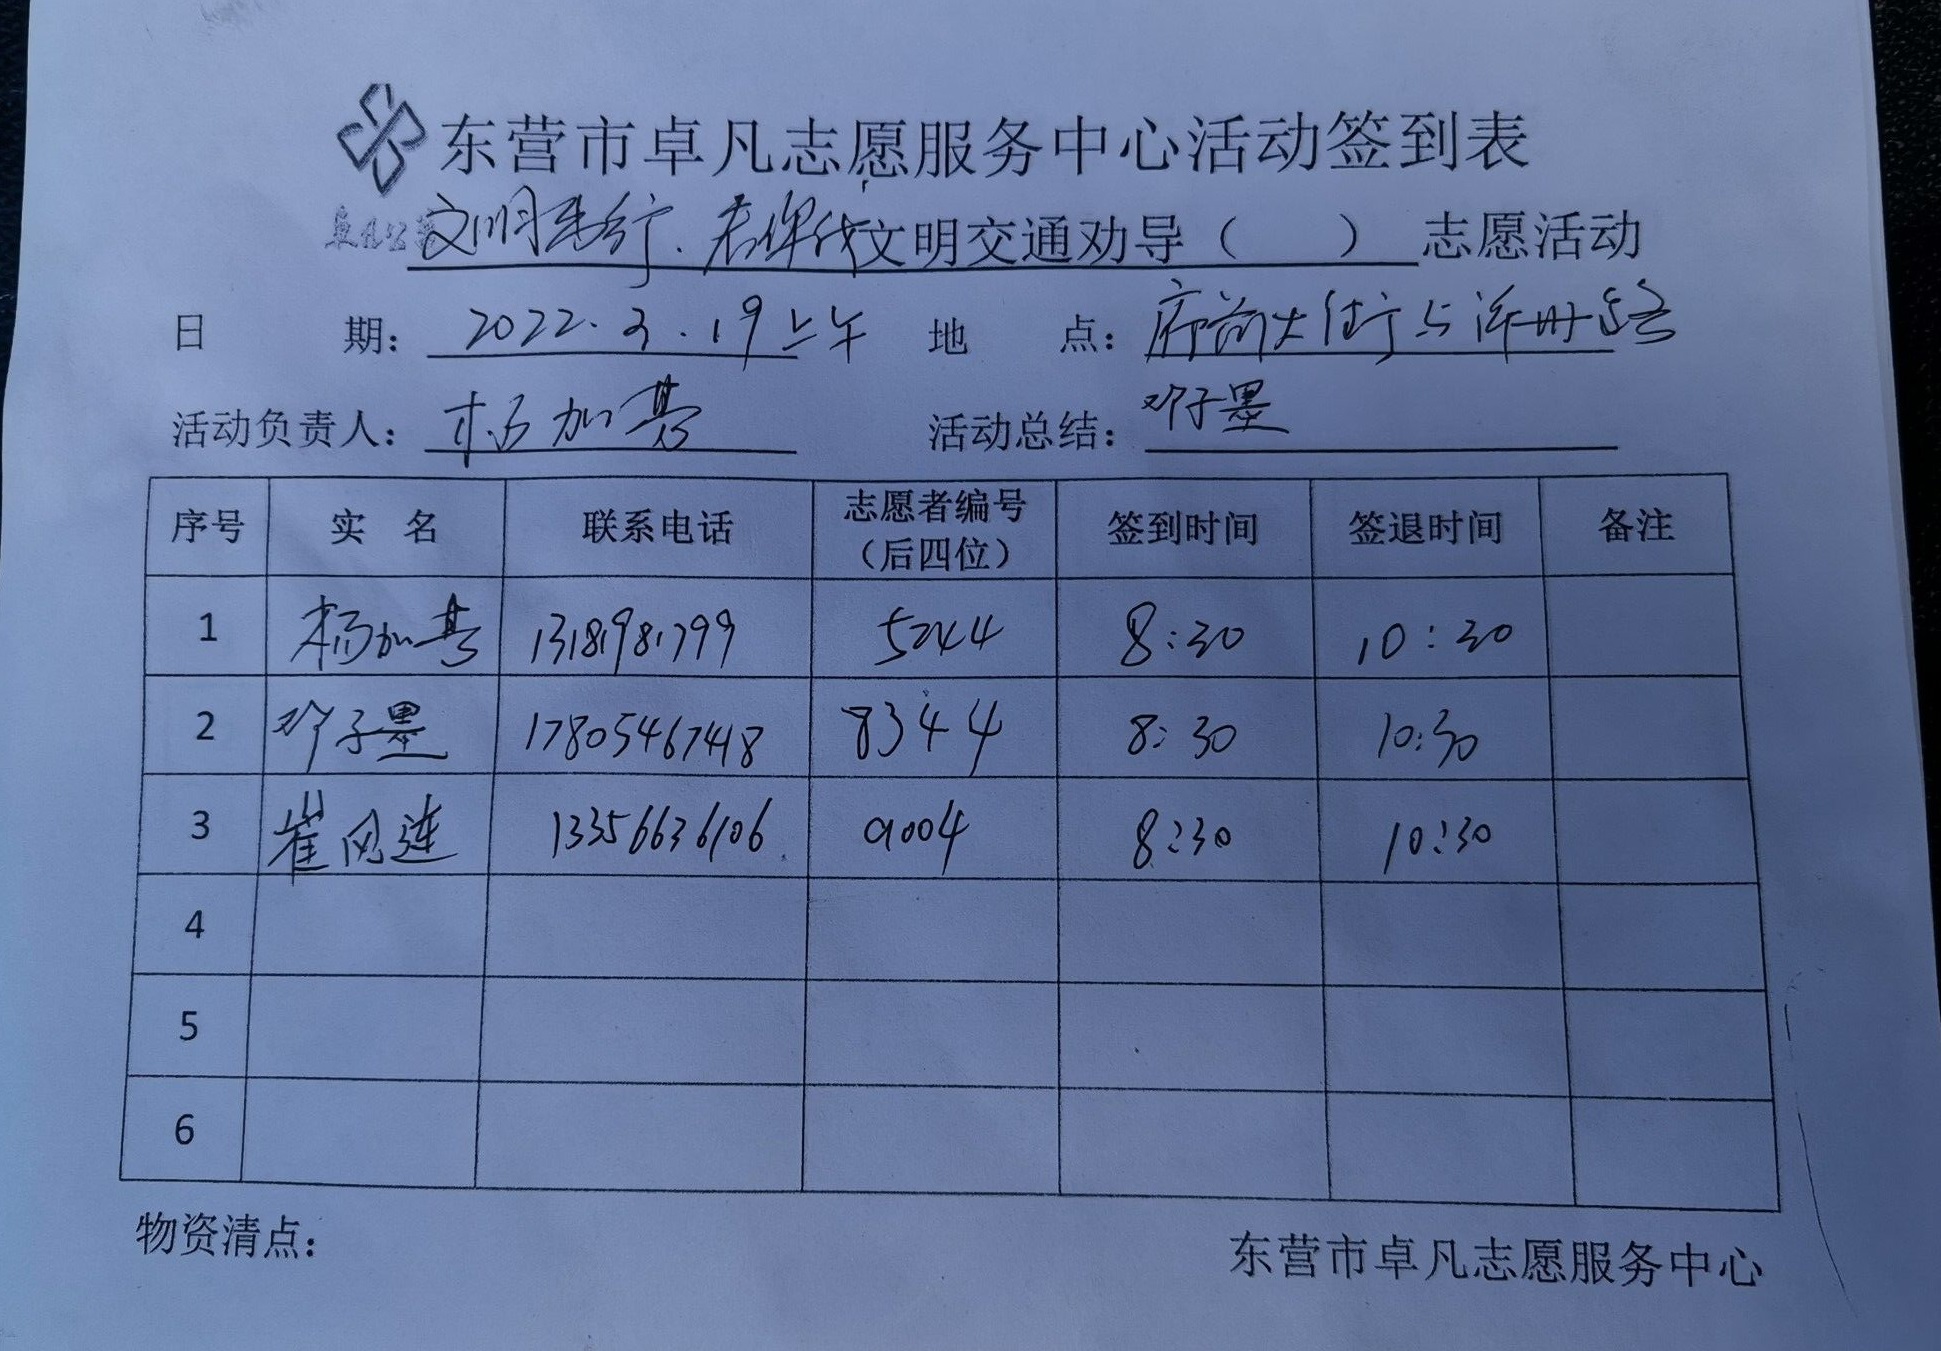 东营市卓凡志愿服务中心活动签到表
卓凡公益
文明出行、 文明交通劝导（ ）志愿活动
日 期： 2022.3.19上午 地 点： 府前大街与 路
活动负责人： 杨加 活动总结： 邓子墨
序号 实 名 联系电话 志愿者编号（后四位） 签到时间 签退时间 备注
1 杨加 13181981799 5244 8:30 10:30
2 邓子墨 17805467418 8344 8:30 10:30
3 崔风连 13356636106 9004 8:30 10:30
4
5
6
物资清点：
东营市卓凡志愿服务中心